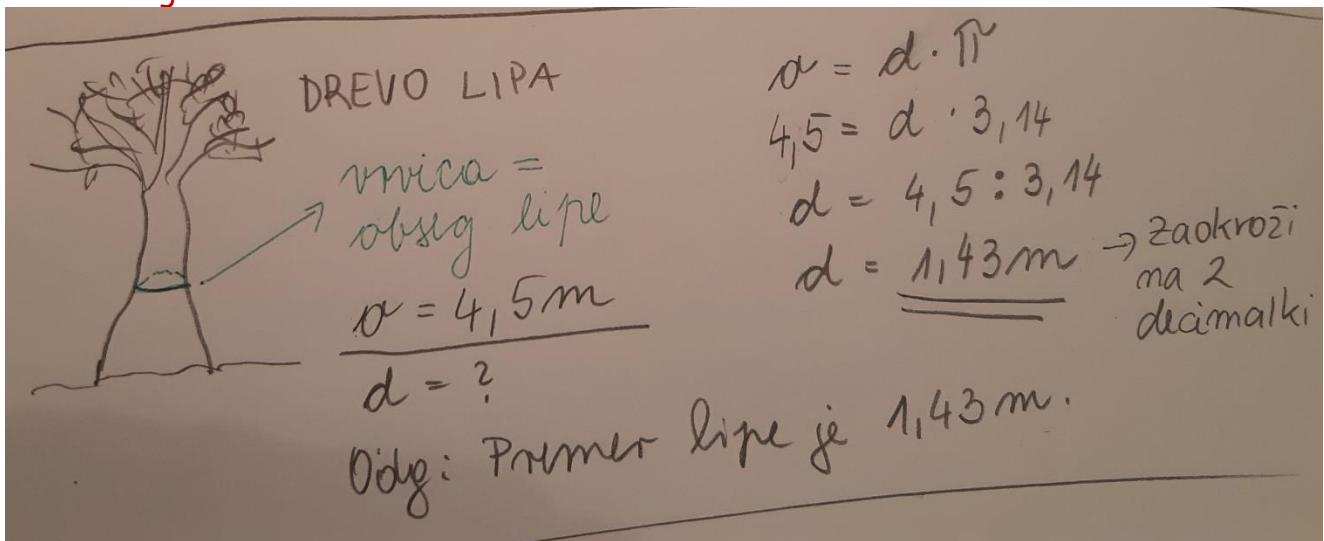 DREVO LIPA
vrvica =
obseg lipe
o = 4,5m
d = ?
o = d · π
4,5 = d · 3,14
d = 4,5 : 3,14
d = 1,43m → Zaokroži
na 2
decimalki
Odg: Premer lipe je 1,43m.